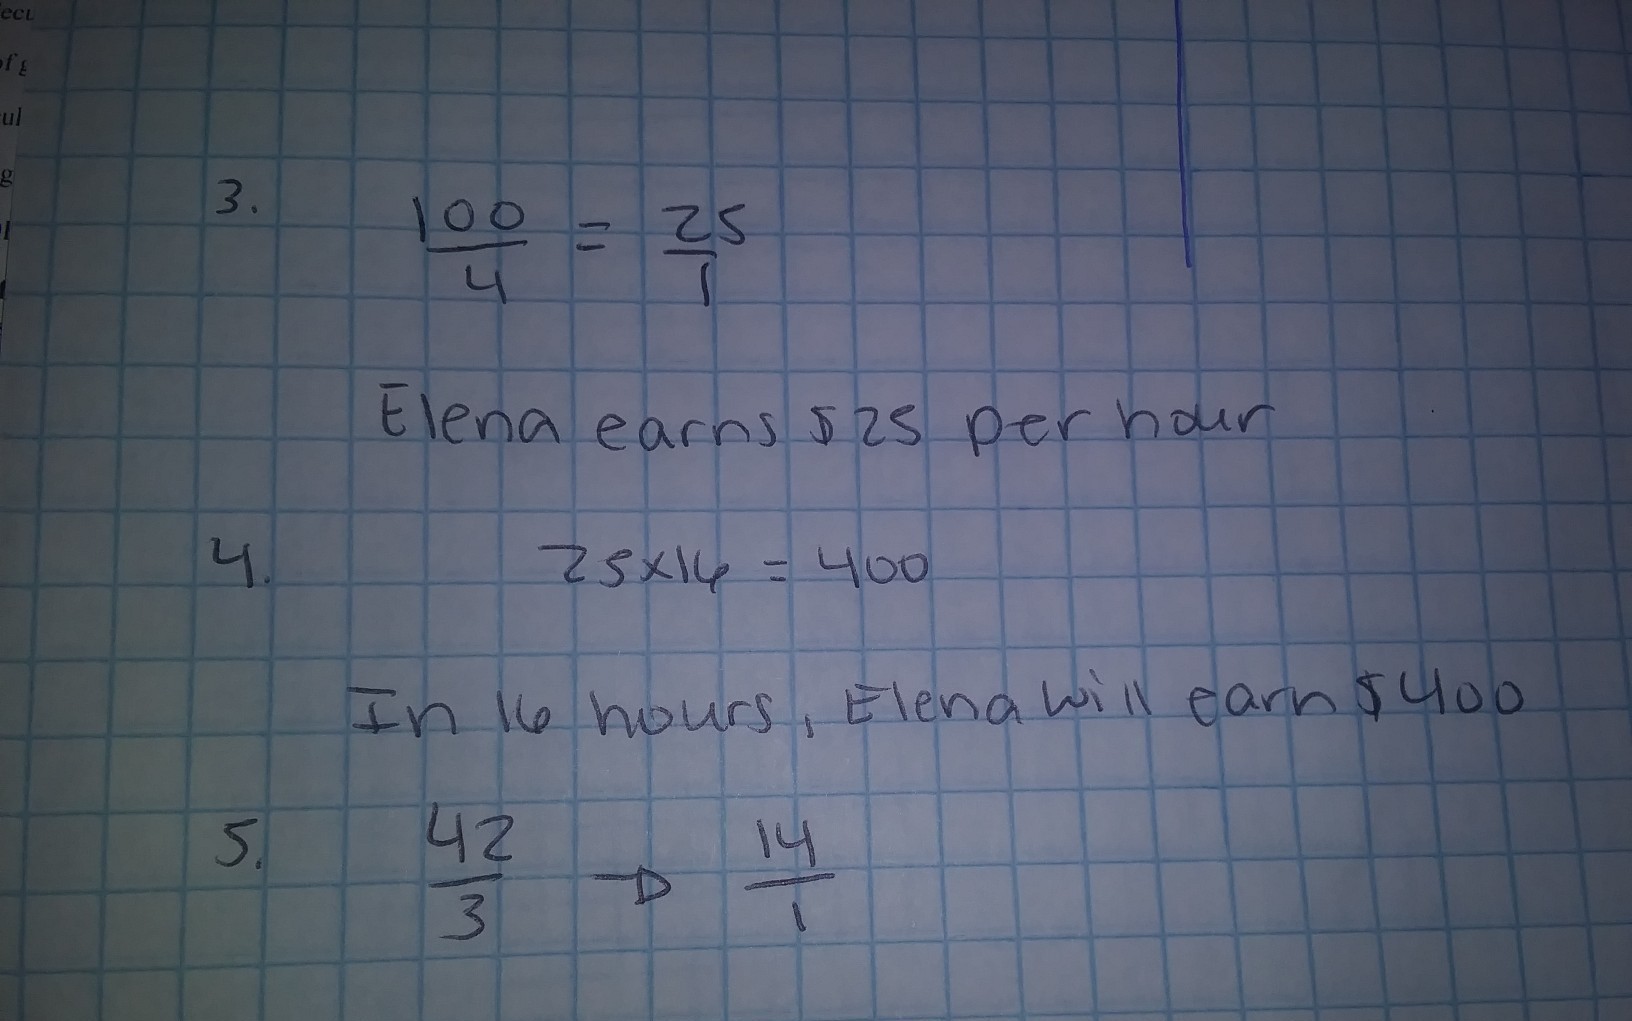 3. 100/4 = 25/1
Elena earns $25 per hour
4. 25x16 = 400
In 16 hours, Elena will earn $400
5. 42/3 → 14/1